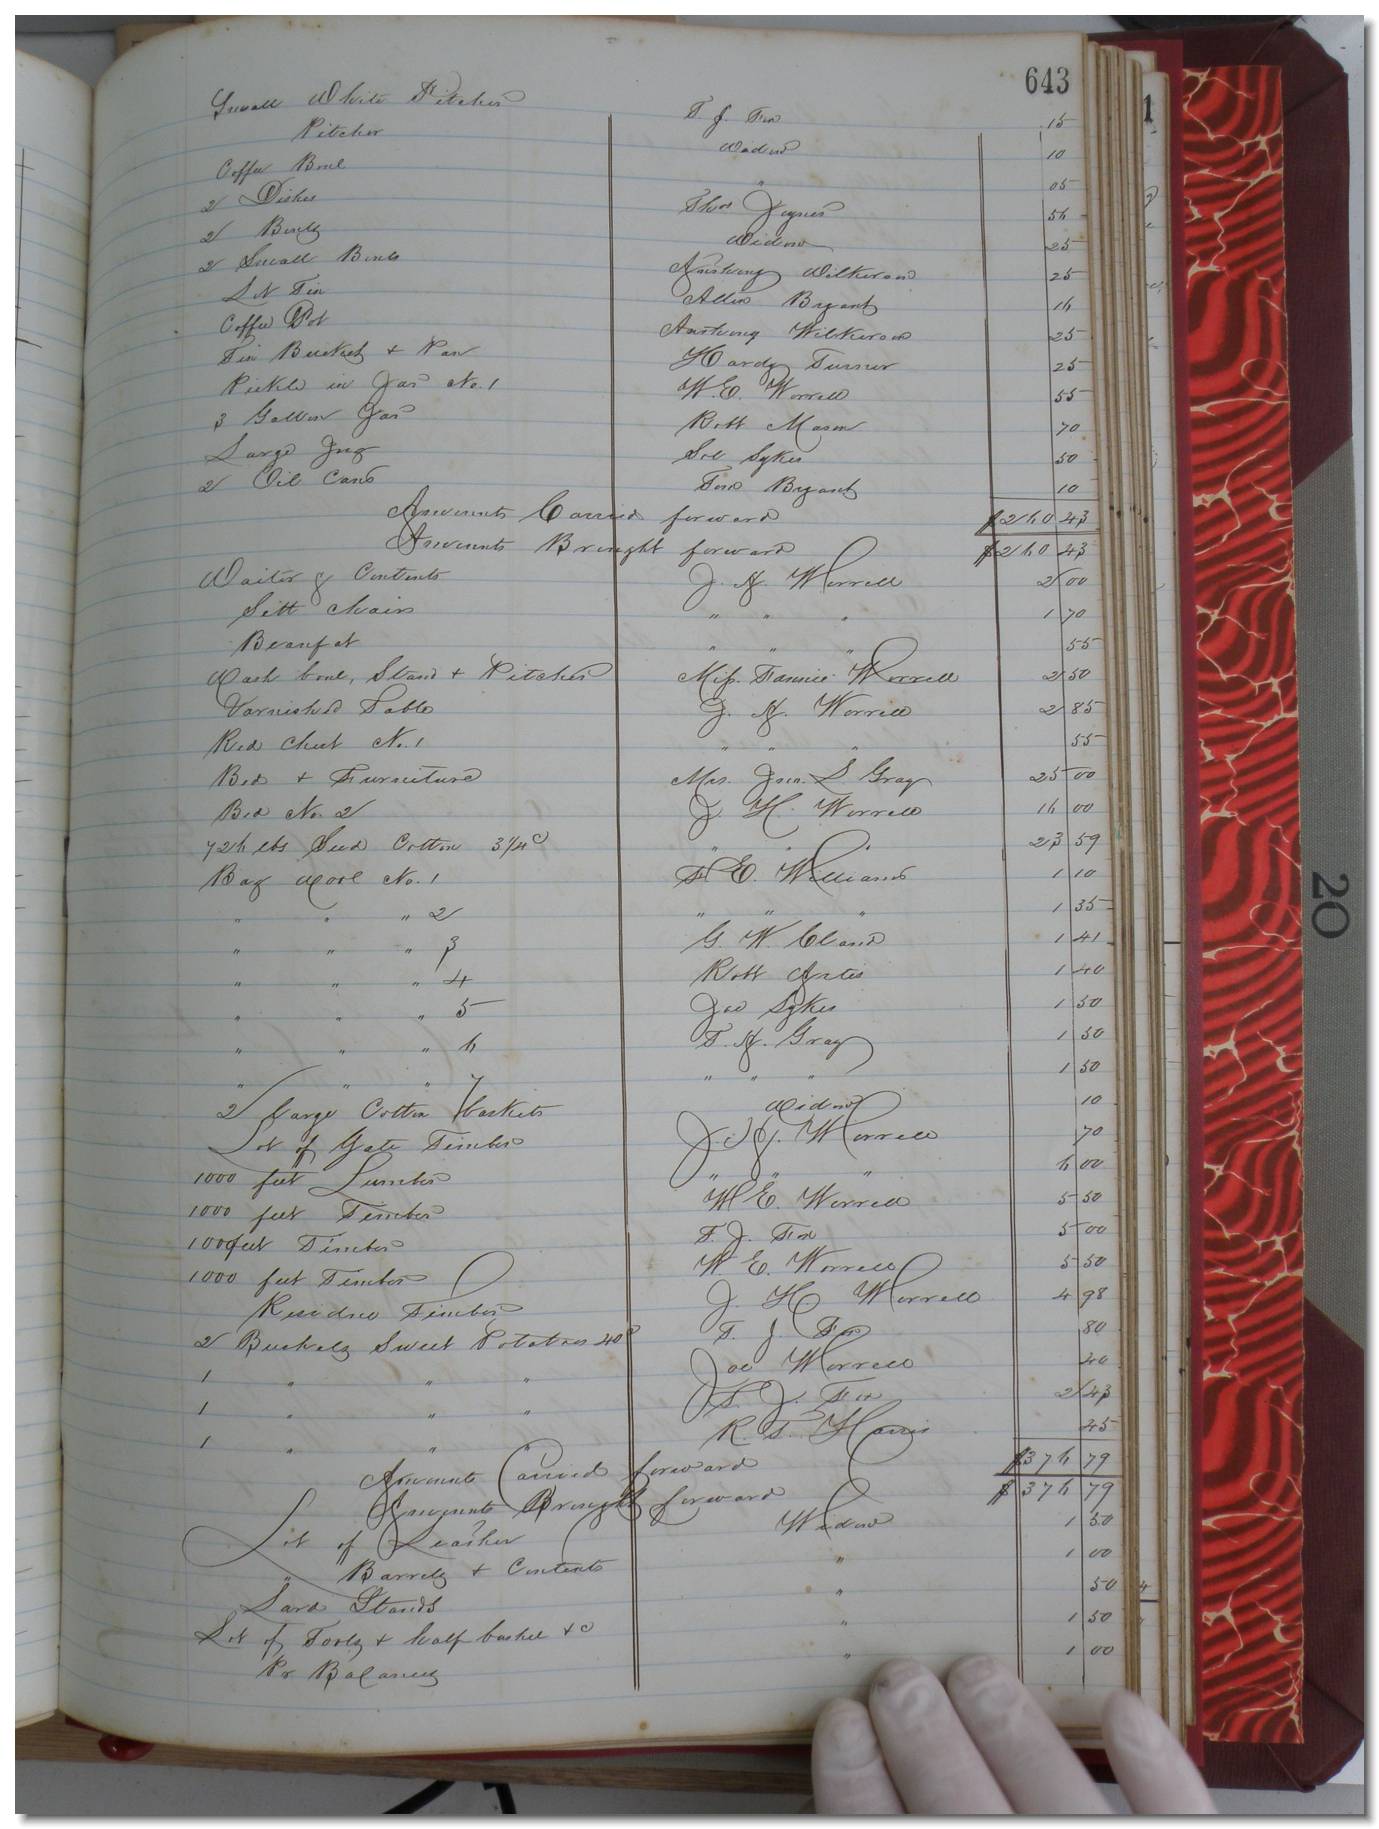 643
Small White Pitcher T. J. Fox .15
Pitcher Widow 10
Coffee Bowl " 05
2 Dishes Thos Joyner 56
2 Bowls Widow 25
2 Small Bowls Armstrong Wilkerson 25
Lot Tin Allen Bryant 16
Coffee Pot Armstrong Wilkerson 25
Tin Bucket & Pan Hardy Turner 25
Pickle in Jar No. 1 W. E. Worrell 55
3 Gallon Jar Robt Mason 70
Large Jug Sol Sykes 50
2 Oil Cans Tom Bryant 10
Amounts Carried forward $260 43
Amounts Brought forward $260 43
Waiter & Contents J. H. Worrell 2 00
Sett Chairs " " " 1 70
Beaufat " " " 55
Wash bowl, Stand & Pitcher Miss Fannie Worrell 2 50
Varnished Table J. H. Worrell 2 85
Red Chest No. 1 " " " 55
Bed & Furniture Mrs. Jno. S. Gray 25 00
Bed No. 2 J. H. Worrell 16 00
726 lbs Seed Cotton 3 1/4 c " " " 23 59
Bag Wool No. 1 F. E. Williams 1 10
" " " 2 " " " 1 35
" " " 3 G. W. Cland 1 41
" " " 4 Robt Artis 1 40
" " " 5 Joe Sykes 1 50
" " " 6 T. H. Gray 1 50
" " " 7 " " " 1 50
2 Large Cotton baskets Widow 10
Lot of Gate Timber J. H. Worrell 70
1000 feet Lumber " " " 6 00
1000 feet Timber W. E. Worrell 5 50
1000 feet Timber T. J. Fox 5 00
1000 feet Timber W. E. Worrell 5 50
Residue Timber J. H. Worrell 4 98
2 Bushels Sweet Potatoes 40c T. J. Fox 80
1 " " " Joe Worrell 40
1 " " " T. J. Fox 2 43
1 " " " R. T. Harris 45
Amounts Carried forward $376 79
Amounts Brought forward $376 79
Lot of Leather Widow 1 50
" Barrels & Contents " 1 00
Lard Stands " 50
Lot of Tools & half bushel &c " 1 50
Pr Balances " 1 00
20